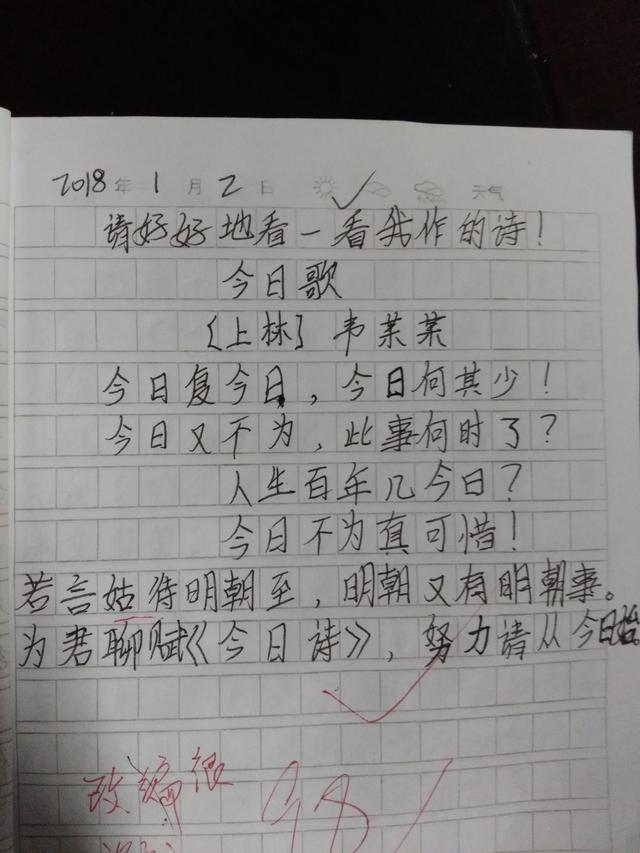 2018年 1月 2日 天气
请好好地看一看我作的诗!
今日歌
[上林] 韦某某
今日复今日,今日何其少!
今日又不为,此事何时了?
人生百年几今日?
今日不为真可惜!
若言姑待明朝至,明朝又有明朝事。
为君聊赋《今日诗》,努力请从今日始。
改编很